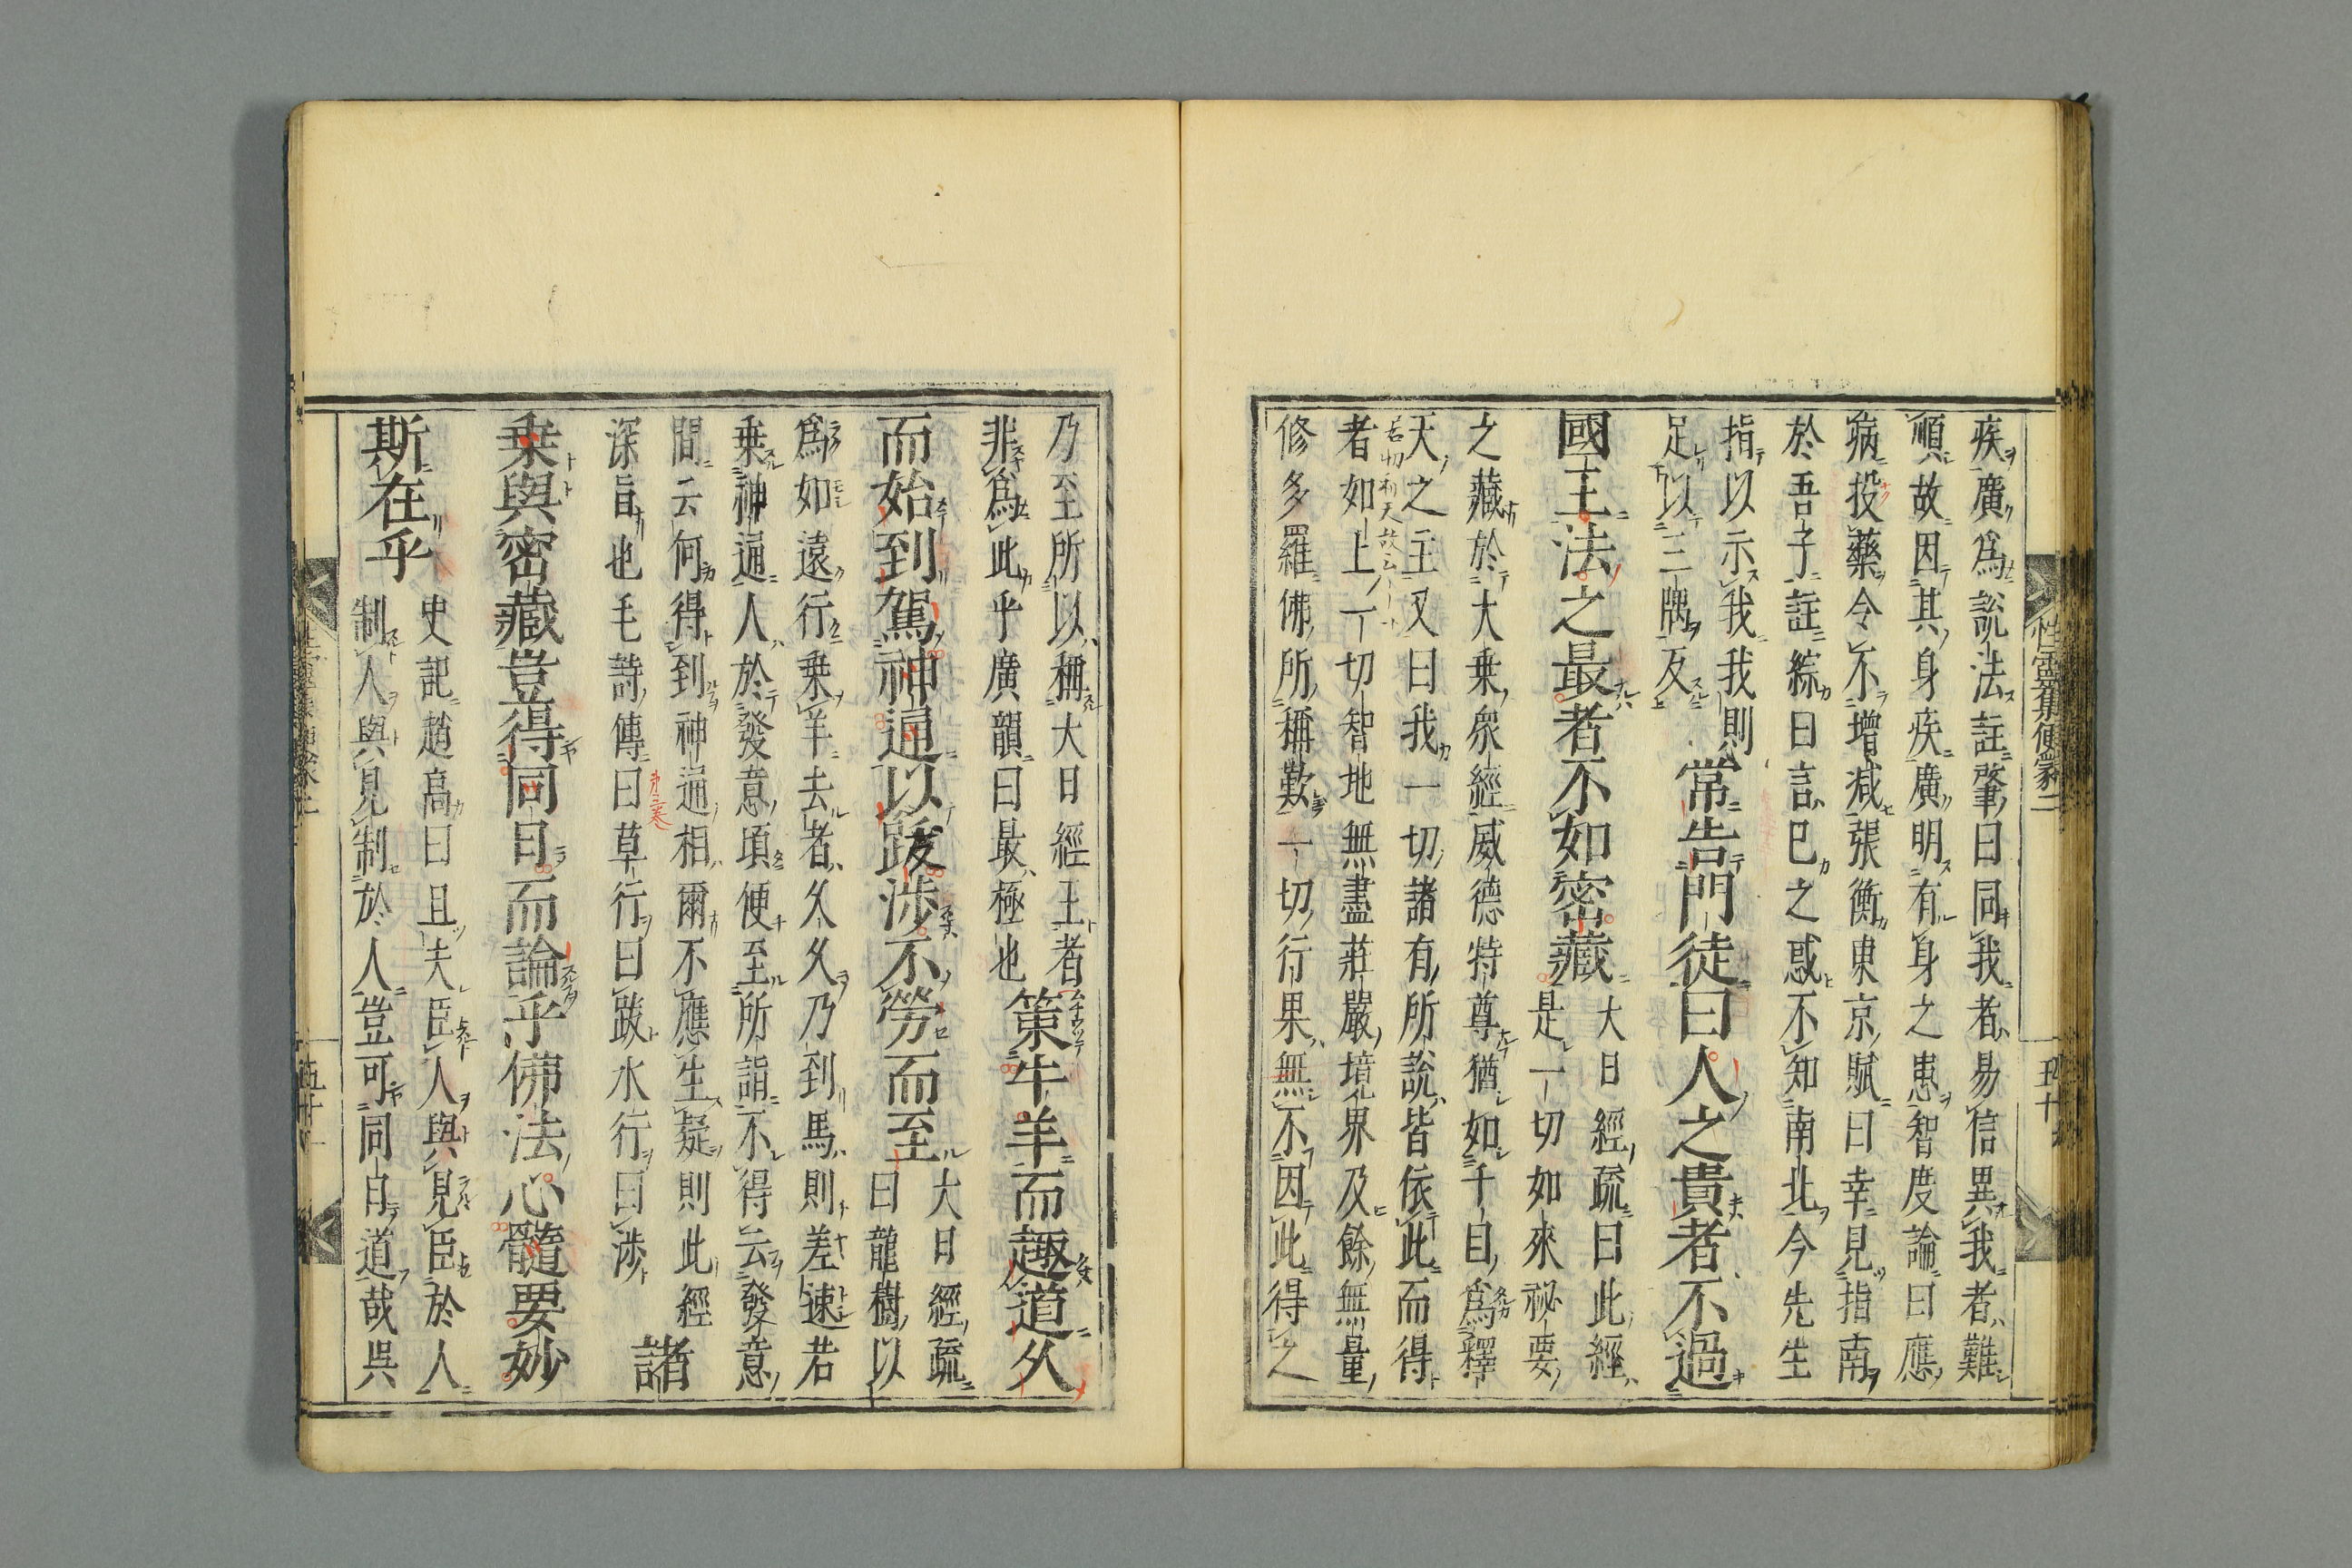 性靈集便蒙二
五十
疾廣爲説法註肇曰同我者易信異我者難
順故因其身疾廣明有身之患智度論曰應
病投藥令不增减張衡東京賦曰幸見指南
於吾子註綜曰言巳之惑不知南北今先生
指以示我我則
足以三隅反
常告門徒曰人之貴者不過
國王法之最者不如密藏
大日經疏曰此經
是一切如來祕要
之藏於大乗衆經威德特尊猶如千目爲釋
天之主又曰我一切諸有所説皆依此而得
者如上一切智地無盡莊嚴境界及餘無量
修多羅佛所稱歎一切行果無不因此得之
乃至所以稱大日經王者
非爲此乎廣韻曰最極也
策牛羊而趣道久
而始到駕神通以跋涉不勞而至
大日經疏
曰龍樹以
爲如遠行乗羊去者久久乃到馬則差速若
乗神通人於發意頃便至所詣不得云發意
間云何得到神通相爾不應生疑則此經
深旨也毛詩傳曰草行曰跋水行曰渉
諸
乗與密藏豈得同日而論乎佛法心髓要妙
斯在乎
史記趙高曰且夫臣人與見臣於人
制人與見制於人豈可同日道哉呉